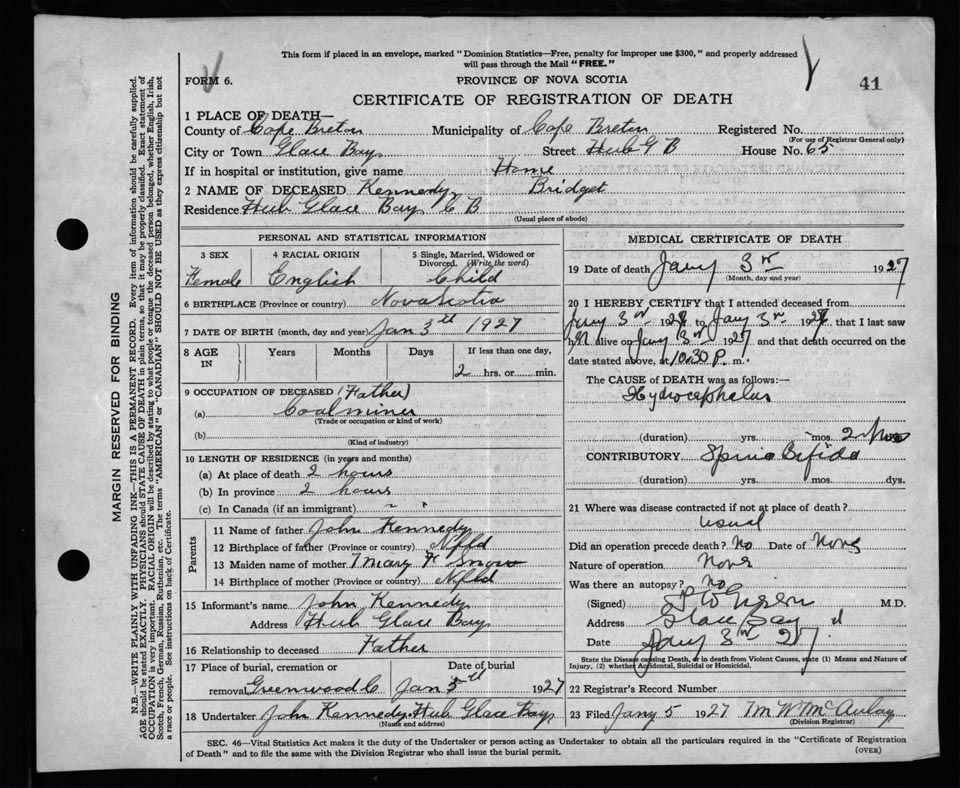 This form if placed in an envelope, marked "Dominion Statistics—Free, penalty for improper use $300," and properly addressed
will pass through the Mail "FREE."
FORM 6.
PROVINCE OF NOVA SCOTIA
41
CERTIFICATE OF REGISTRATION OF DEATH
1 PLACE OF DEATH—
County of Cape Breton Municipality of Cape Breton Registered No.
(For use of Registrar General only)
City or Town Glace Bay Street Hub G B House No. 65
If in hospital or institution, give name Home
2 NAME OF DECEASED Kennedy Bridget
Residence Hub Glace Bay C B
(Usual place of abode)
PERSONAL AND STATISTICAL INFORMATION
3 SEX 4 RACIAL ORIGIN 5 Single, Married, Widowed or
Divorced. (Write the word)
Female English Child
6 BIRTHPLACE (Province or country) Nova Scotia
7 DATE OF BIRTH (month, day and year) Jan 3th 1927
8 AGE IN Years Months Days If less than one day,
2 hrs. or min.
9 OCCUPATION OF DECEASED (Father)
(a) Coalminer
(Trade or occupation or kind of work)
(b)
(Kind of industry)
10 LENGTH OF RESIDENCE (in years and months)
(a) At place of death 2 hours
(b) In province 2 hours
(c) In Canada (if an immigrant)
Parents
11 Name of father John Kennedy
12 Birthplace of father (Province or country) Nfld
13 Maiden name of mother Mary F Snow
14 Birthplace of mother (Province or country) Nfld
15 Informant's name John Kennedy
Address Hub Glace Bay
16 Relationship to deceased Father
17 Place of burial, cremation or Date of burial
removal Greenwood C Jan 5th 1927
18 Undertaker John Kennedy Hub Glace Bay
(Name and address)
MEDICAL CERTIFICATE OF DEATH
19 Date of death Jany 3rd 1927
(Month, day and year)
20 I HEREBY CERTIFY that I attended deceased from
Jany 3rd 1927 to Jany 3rd 1927, that I last saw
h alive on Jany 3rd 1927 and that death occurred on the
date stated above, at 10.30 P. m.
The CAUSE of DEATH was as follows:—
Hydrocephelus
(duration) yrs. mos. 2
CONTRIBUTORY Spina Bifida
(duration) yrs. mos. dys.
21 Where was disease contracted if not at place of death?
usual
Did an operation precede death? No Date of None
Nature of operation None
Was there an autopsy? No
(Signed) M.D.
Address Glace Bay
Date Jany 3rd 27
State the Disease causing Death, or in death from Violent Causes, state (1) Means and Nature of
Injury, (2) whether Accidental, Suicidal or Homicidal.
22 Registrar's Record Number
23 Filed Jany 5 1927 M W McAulay
(Division Registrar)
SEC. 46—Vital Statistics Act makes it the duty of the Undertaker or person acting as Undertaker to obtain all the particulars required in the "Certificate of Registration
of Death" and to file the same with the Division Registrar who shall issue the burial permit.
(OVER)
MARGIN RESERVED FOR BINDING
N.B.—WRITE PLAINLY WITH UNFADING INK—THIS IS A PERMANENT RECORD. Every item of information should be carefully supplied.
AGE should be stated EXACTLY. PHYSICIANS should STATE CAUSE OF DEATH in plain terms, so that it may be properly classified. Exact statement of
OCCUPATION is very important. RACIAL ORIGIN will be described by stating to what people or tongue the deceased person belonged, whether English, Irish,
Scotch, French, German, Russian, Ruthenian, etc. The terms "AMERICAN" or "CANADIAN" SHOULD NOT BE USED as they express citizenship but not
a race or people. See instructions on back of Certificate.